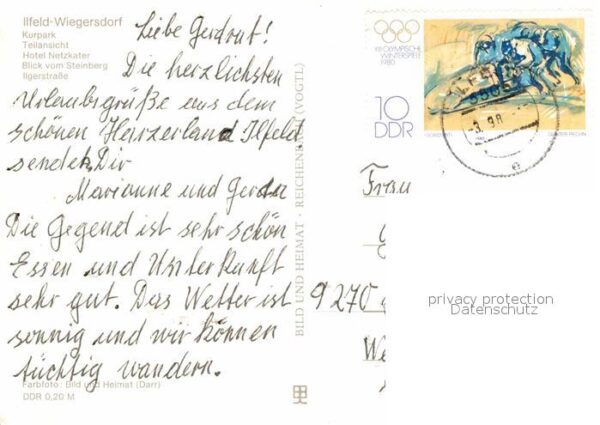 Ilfeld-Wiegersdorf
Kurpark
Teilansicht
Hotel Netzkater
Blick vom Steinberg
Ilgerstraße
Liebe Gerdraut!
Die herzlichsten
Urlaubsgrüße aus dem
schönen Harzerland Ilfeld
sendet Dir
Marianne und Gerda
Die Gegend ist sehr schön
Essen und Unterkunft
sehr gut. Das Wetter ist
sonnig und wir können
tüchtig wandern.
Farbfoto: Bild und Heimat (Darr)
DDR 0,20 M
BILD UND HEIMAT · REICHENBACH (VOGTL)
XIII OLYMPISCHE
WINTERSPIELE
1980
10
DDR
Frau
9270
privacy protection
Datenschutz